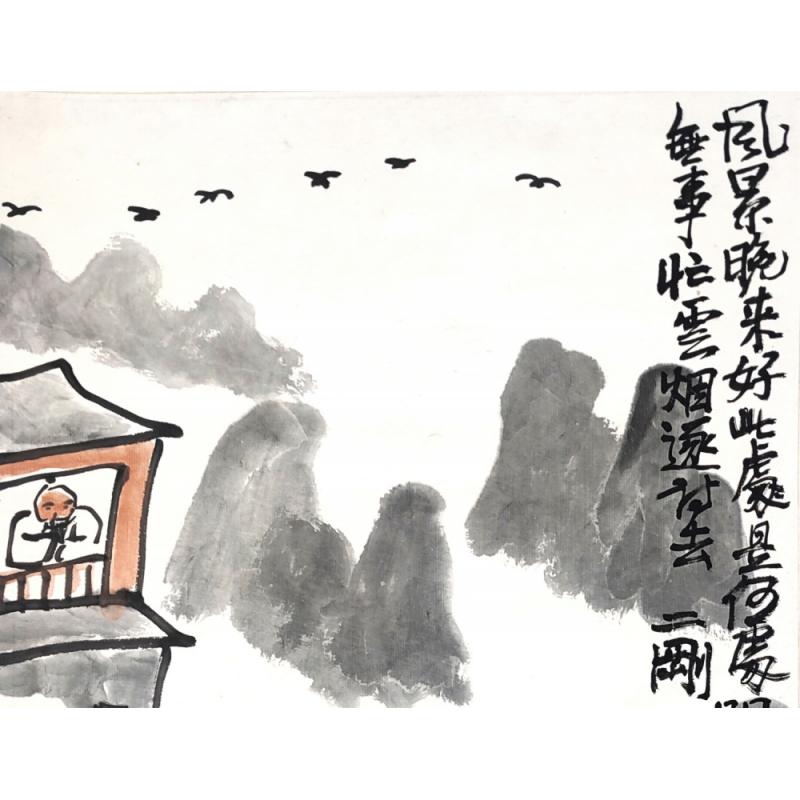 風景晚来好此處是何處
無事忙雲烟逐过去 二剛